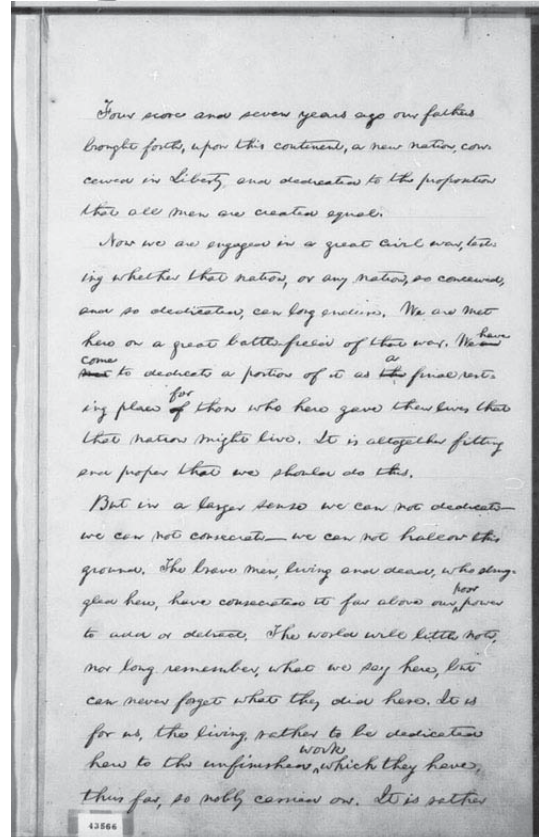 Four score and seven years ago our fathers
brought forth, upon this continent, a new nation, con-
ceived in Liberty, and dedicated to the proposition
that all men are created equal.
Now we are engaged in a great civil war, test-
ing whether that nation, or any nation, so conceived,
and so dedicated, can long endure. We are met
here on a great battle-field of that war. We are have
come
met to dedicate a portion of it as the a final rest-
ing place of for those who here gave their lives that
that nation might live. It is altogether fitting
and proper that we should do this.
But in a larger sense we can not dedicate—
we can not consecrate— we can not hallow this
ground. The brave men, living and dead, who strug-
gled here, have consecrated it far above our poor power
to add or detract. The world will little note,
nor long remember, what we say here, but
can never forget what they did here. It is
for us, the living, rather to be dedicated
here to the unfinished work which they have,
thus far, so nobly carried on. It is rather
43566